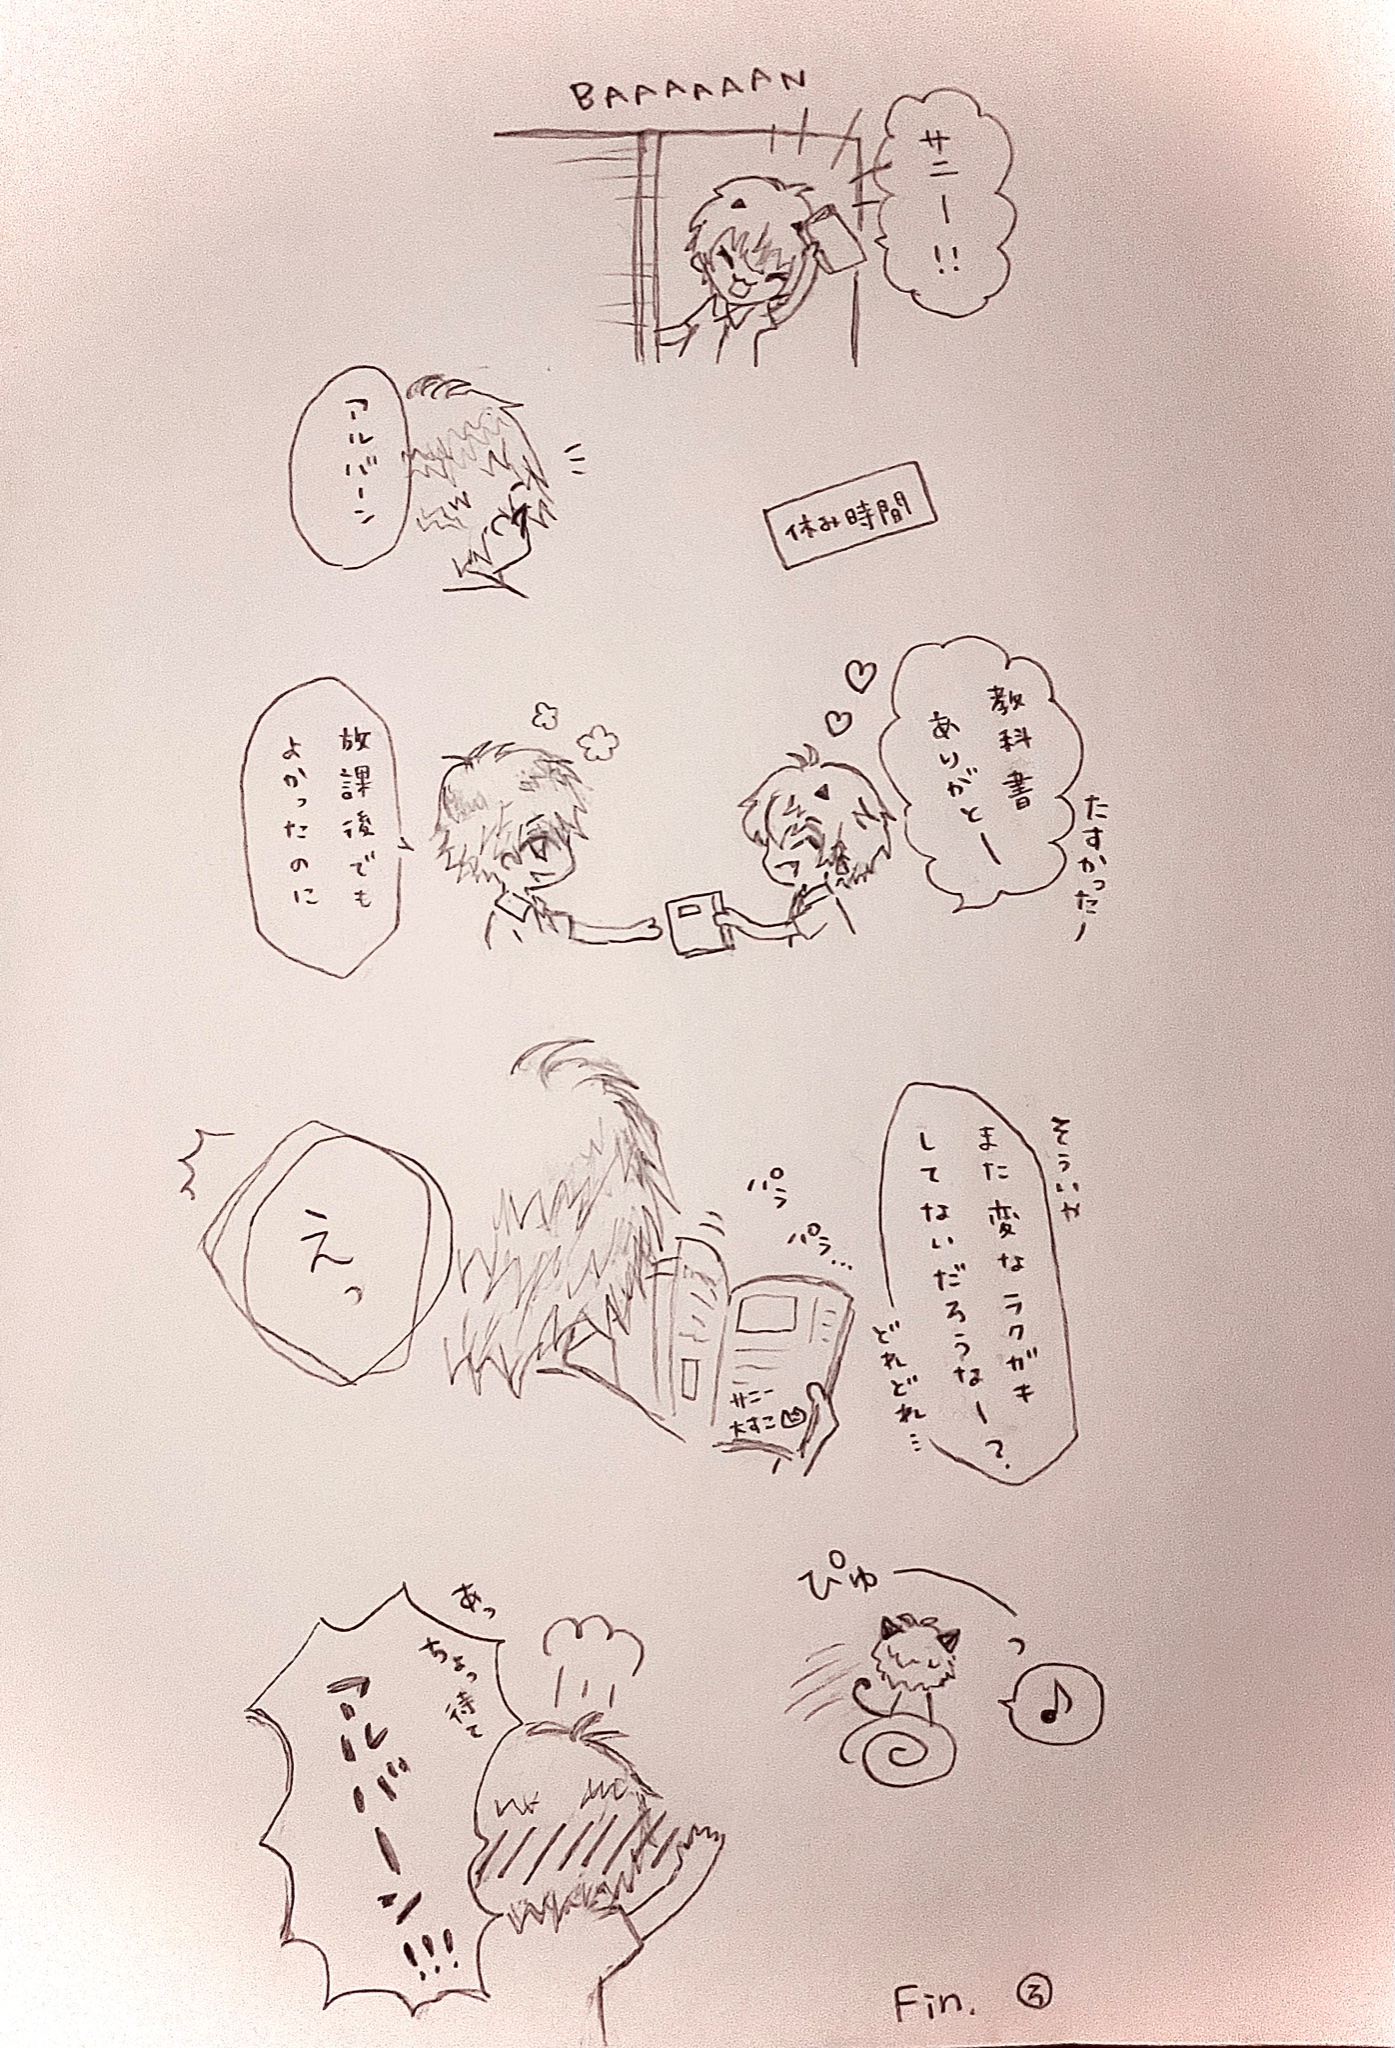 BAAAAAAN
サニー!!
アルバーン
休み時間
教科書
ありがとー
たすかったー
放課後でも
よかったのに
そういや
また変なラクガキ
してないだろうなー?
どれどれ…
パラ
パラ…
サニー
大すこ
えっ
ぴゅーっ
あっ
ちょっ待て
アルバーン!!!
Fin.
3